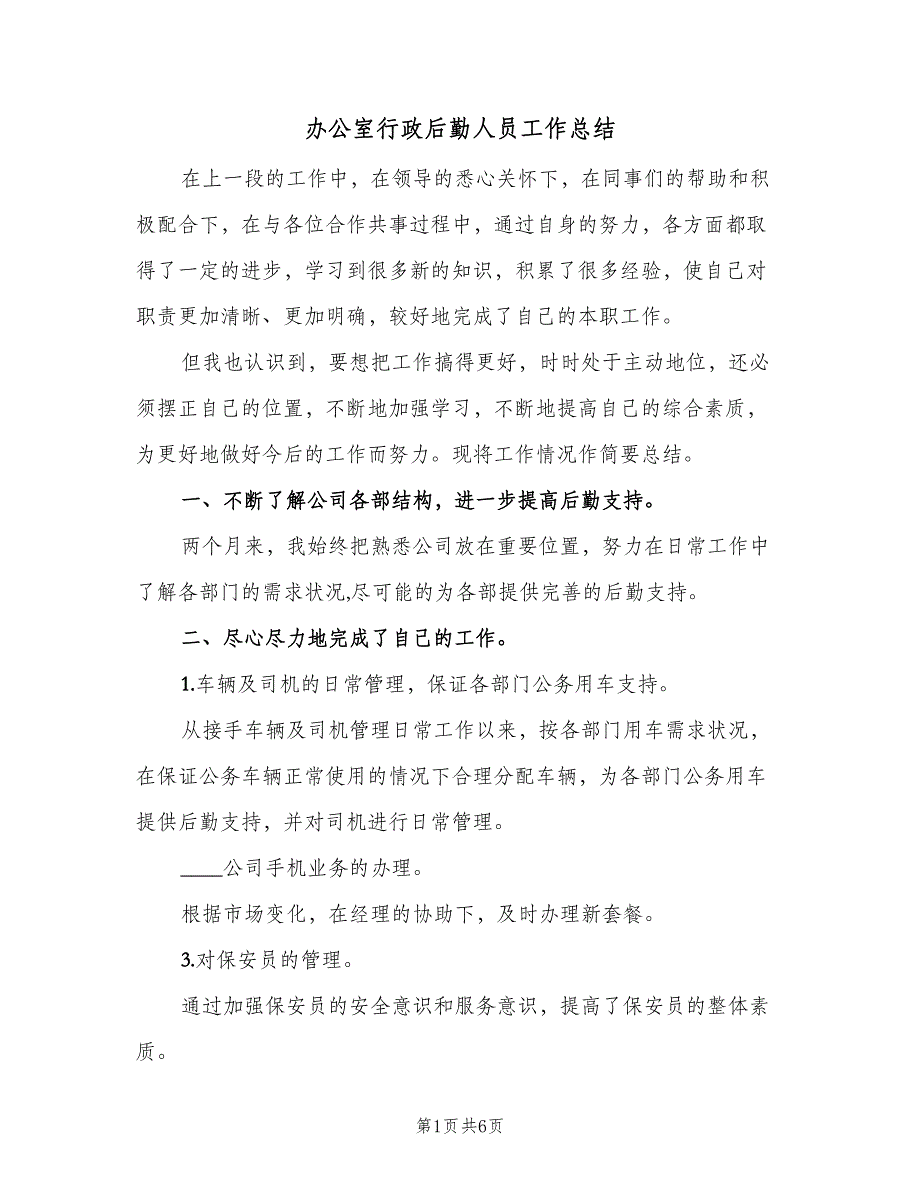 办公室行政后勤人员工作总结
在上一段的工作中，在领导的悉心关怀下，在同事们的帮助和积
极配合下，在与各位合作共事过程中，通过自身的努力，各方面都取
得了一定的进步，学习到很多新的知识，积累了很多经验，使自己对
职责更加清晰、更加明确，较好地完成了自己的本职工作。
但我也认识到，要想把工作搞得更好，时时处于主动地位，还必
须摆正自己的位置，不断地加强学习，不断地提高自己的综合素质，
为更好地做好今后的工作而努力。现将工作情况作简要总结。
一、不断了解公司各部结构，进一步提高后勤支持。
两个月来，我始终把熟悉公司放在重要位置，努力在日常工作中
了解各部门的需求状况,尽可能的为各部提供完善的后勤支持。
二、尽心尽力地完成了自己的工作。
1.车辆及司机的日常管理，保证各部门公务用车支持。
从接手车辆及司机管理日常工作以来，按各部门用车需求状况，
在保证公务车辆正常使用的情况下合理分配车辆，为各部门公务用车
提供后勤支持，并对司机进行日常管理。
____公司手机业务的办理。
根据市场变化，在经理的协助下，及时办理新套餐。
3.对保安员的管理。
通过加强保安员的安全意识和服务意识，提高了保安员的整体素
质。
第1页共6页